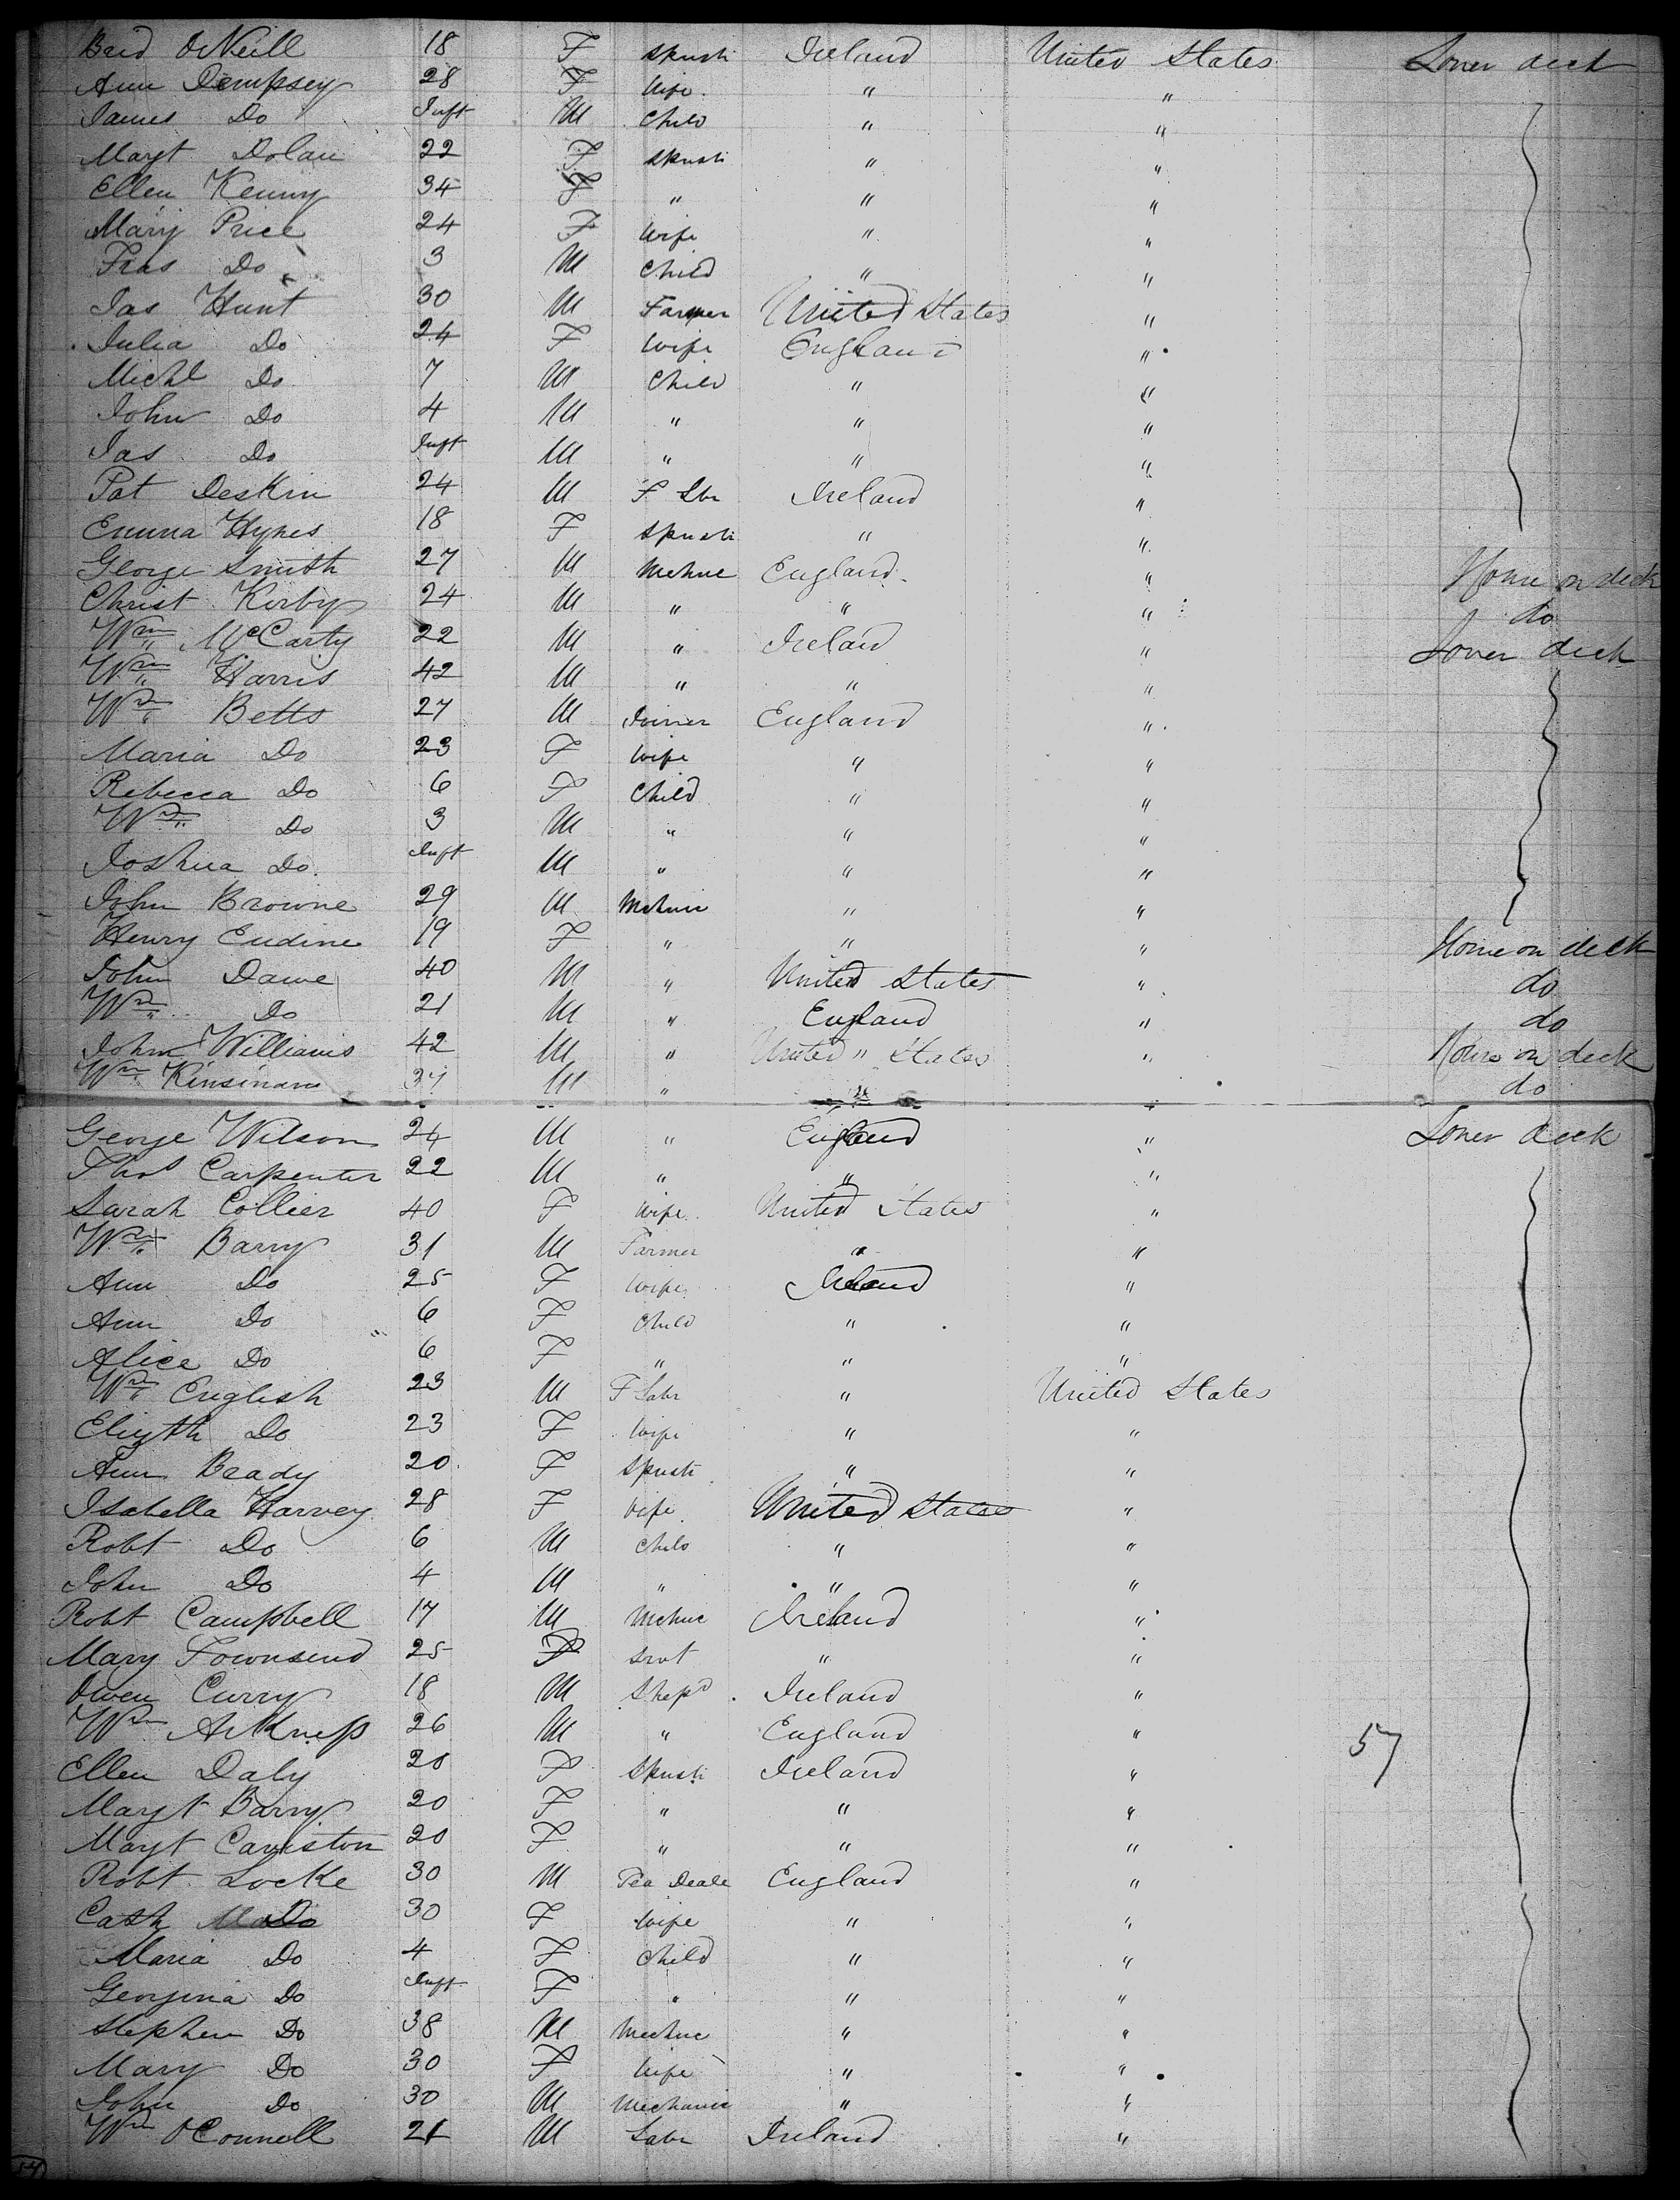 Brid O'Neill 18 F Spinstr Ireland United States Lower deck
Ann Dempsey 28 F Wife " "
James Do Inft M Child " "
Margt Dolan 22 F Spinstr " "
Ellen Kenny 34 F " " "
Mary Price 24 F Wife " "
Fras Do 3 M Child " "
Jas Hunt 30 M Farmer United States "
Julia Do 24 F Wife England "
Michl Do 7 M Child " "
John Do 4 M " " "
Jas Do Inft M " " "
Pat Deskin 24 M F Lbr Ireland "
Emma Hynes 18 F Spinstr " "
George Smith 27 M Mchnc England " House on deck
Christ Kirby 24 M " " " do
Wm McCarty 22 M " Ireland " Lower deck
Wm Harris 42 M " " "
Wm Betts 27 M Joiner England "
Maria Do 23 F Wife " "
Rebecca Do 6 F Child " "
Wm Do 3 M " " "
Joshua Do Inft M " " "
John Browne 29 M Mchnic " "
Henry Eudine 19 F " " " House on deck
John Dawe 40 M " United States " do
Wm Do 21 M " England " do
John Williams 42 M " United " States " House on deck
Wm Kinsinam 37 M " " do
George Wilson 24 M " England " Lower deck
Thos Carpenter 22 M " " "
Sarah Collier 40 F Wife United States "
Wm Barry 31 M Farmer " "
Ann Do 25 F Wife Ireland "
Ann Do 6 F Child " "
Alice Do 6 F " " "
Wm English 23 M F Labr " United States
Elizth Do 23 F Wife " "
Ann Brady 20 F Spinstr " "
Isabella Harvey 28 F Wife United States "
Robt Do 6 M Child " "
John Do 4 M " " "
Robt Campbell 17 M Mchnc Ireland "
Mary Townsend 25 F Srvt " "
Owen Curry 18 M Shepd Ireland "
Wm Arkness 26 M " England " 57
Ellen Daly 20 F Spinstr Ireland "
Margt Barry 20 F " " "
Margt Caviston 20 F " " "
Robt Locke 30 M Tea Deale England "
Cath Do 30 F Wife " "
Maria Do 4 F Child " "
Georgina Do Inft F " " "
Stephen Do 38 M Mechnc " "
Mary Do 30 F Wife " "
John Do 30 M Mechanic " "
Wm O'Connell 21 M Labr Ireland "